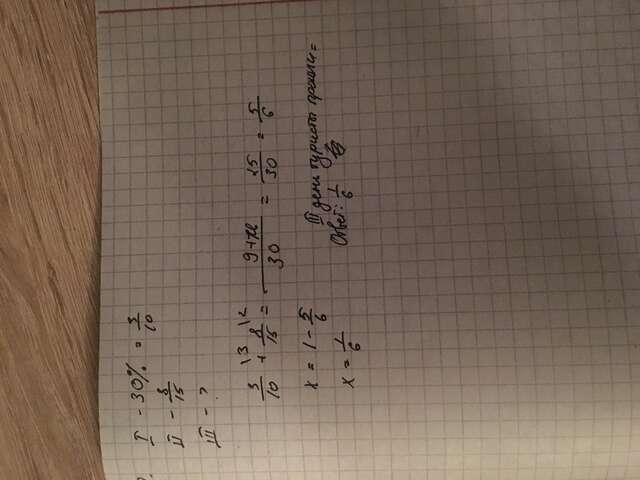 I - 30% = 3/10
II - 8/15
III - ?
3/10 \3 + 8/15 \2 = 9+16/30 = 25/30 = 5/6
x = 1 - 5/6
III день туристы прошли =
x = 1/6
Ответ: 1/6